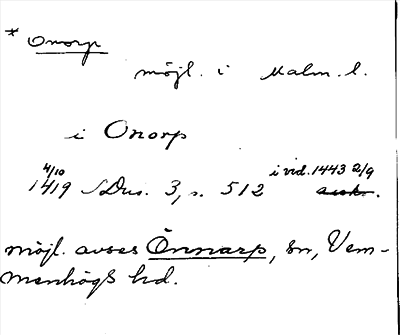 * Onorp
möjl. i Malm. l.
i Onorp
4/10 i vid. 1443 2/9
1419 SDns. 3, s. 512 avskr.
möjl. avses Önnarp, sn, Vem-
menhögs hd.